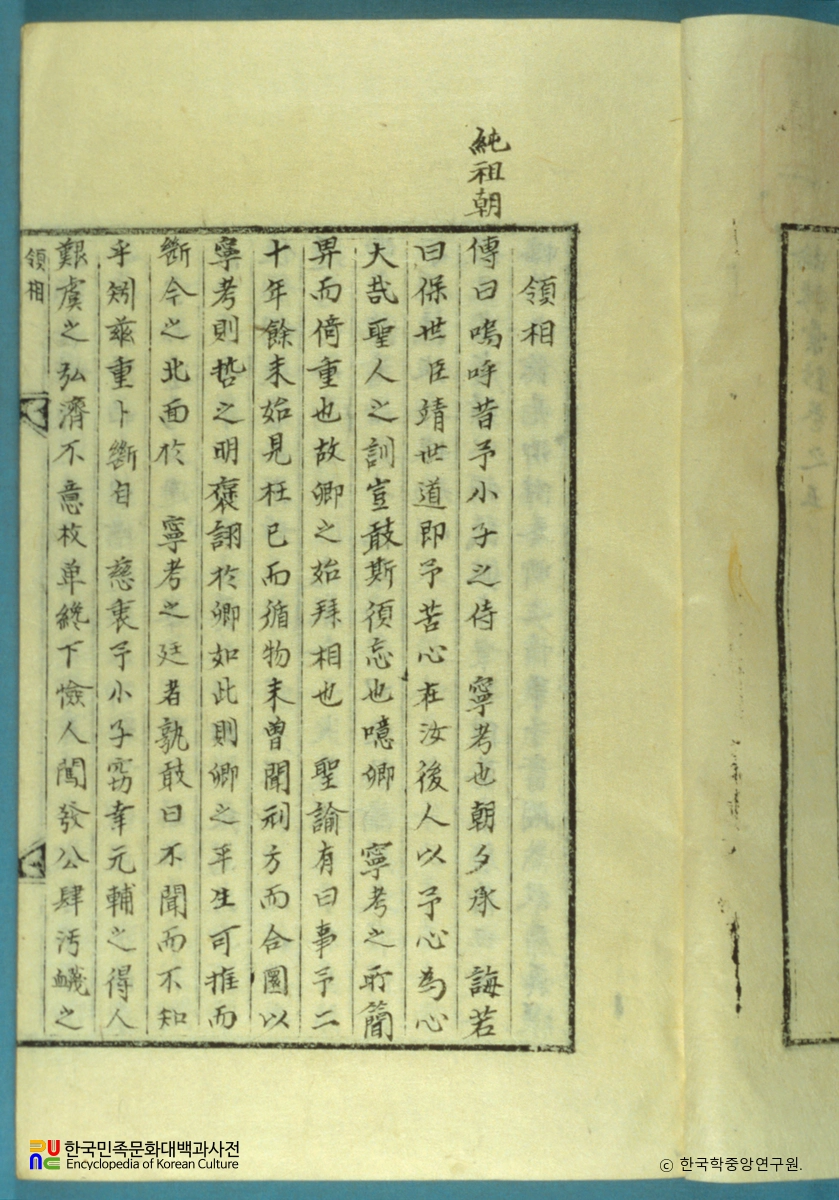 純祖朝
領相
傳曰嗚呼昔予小子之侍 寧考也朝夕承 誨若
曰保世臣靖世道即予苦心在汝後人以予心為心
大哉聖人之訓豈敢斯須忘也噫卿 寧考之所簡
畀而倚重也故卿之始拜相也 聖諭有曰事予二
十年餘未始見枉己而循物未曾聞刓方而合圜以
寧考則哲之明褒詡於卿如此則卿之平生可推而
斷今之北面於 寧考之廷者孰敢曰不聞而不知
乎矧玆重卜斷自 慈衷予小子窃幸元輔之得人
艱虞之弘濟不意枚单纔下憸人闖發公肆汚衊之
領相
한국민족문화대백과사전
Encyclopedia of Korean Culture
ⓒ 한국학중앙연구원.